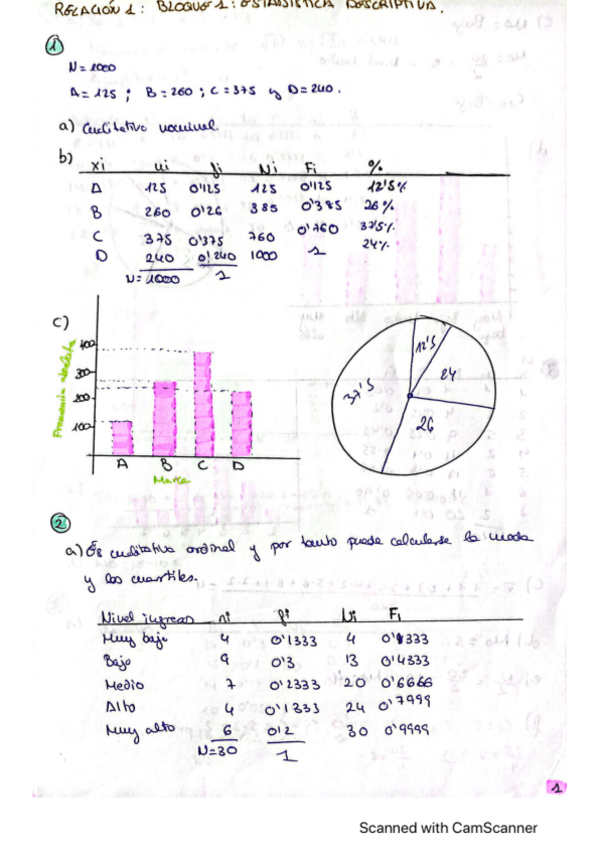 RELACIÓN 1: BLOQUE 1: ESTADÍSTICA DESCRIPTIVA.
1
N=1000
A=125 ; B=260 ; C=375 y D=240.
a) Cualitativo nominal
b)
xi ni fi Ni Fi %
A 125 0'125 125 0'125 12'5%
B 260 0'26 385 0'385 26%
C 375 0'375 760 0'760 37'5%
D 240 0'240 1000 1 24%
N=1000 1
c)
Frecuencia absoluta
400
300
200
100
A B C D
Marca
12'5
24
26
37'5
2
a) Es cualitativa ordinal y por tanto puede calcularse la moda
y los cuartiles.
Nivel ingreso ni fi Ni Fi
Muy bajo 4 0'1333 4 0'1333
Bajo 9 0'3 13 0'4333
Medio 7 0'2333 20 0'6666
Alto 4 0'1333 24 0'7999
Muy alto 6 0'2 30 0'9999
N=30 1
1
Scanned with CamScanner